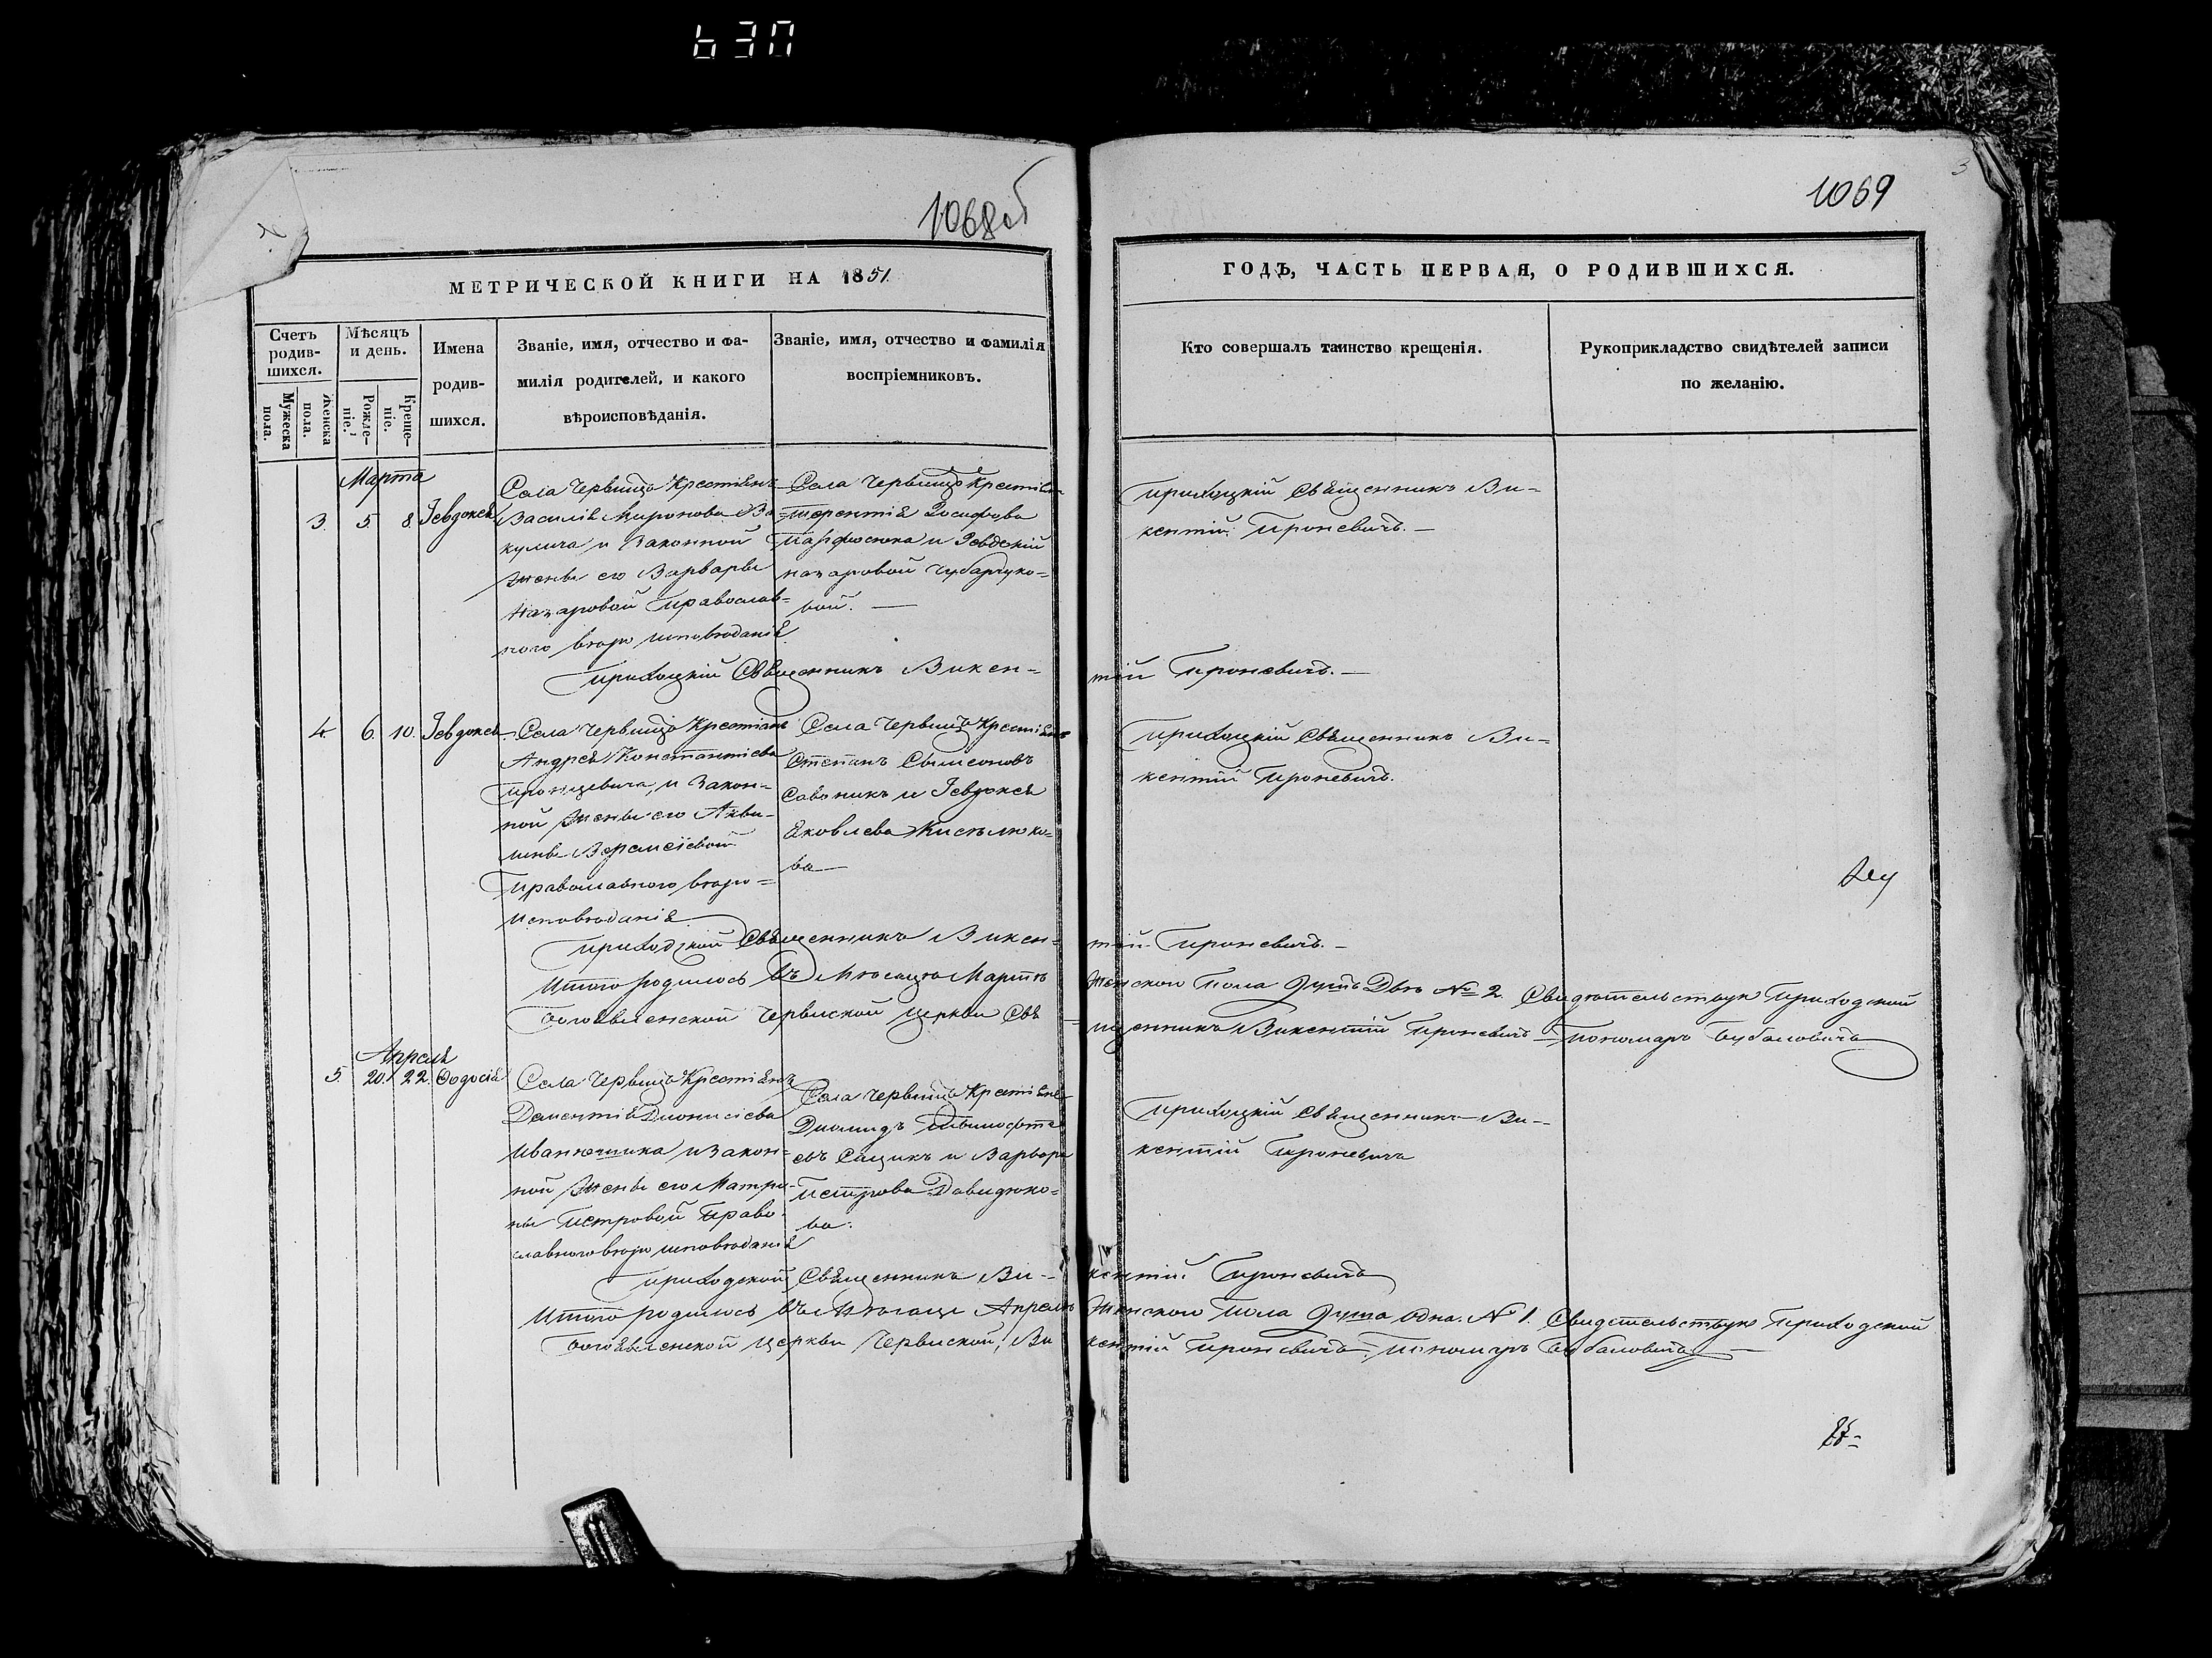 630
1068об
1069
3
МЕТРИЧЕСКОЙ КНИГИ НА 1851.
ГОДЪ, ЧАСТЬ ПЕРВАЯ, О РОДИВШИХСЯ.
Счетъ родив-шихся.
Мужеска пола.
Женска пола.
Мѣсяцъ и день.
Рожде-ніе.
Креще-ніе.
Имена родив-шихся.
Званіе, имя, отчество и фа-
милія родителей, и какого
вѣроисповѣданія.
Званіе, имя, отчество и фамилія
воспріемниковъ.
Кто совершалъ таинство крещенія.
Рукоприкладство свидѣтелей записи
по желанію.
Марта
3. 5 8 Іевдокія
Села Червищъ Крестіянъ
Василія Миронова Ва
кулича и Законной
Жены его Варвары
Назаровой Православ=
ного вѣро исповѣданія
Села Червищъ Крестіян
Терентія Іосифова
Парфюсюка и Іевдокіи
Назаровой
вой. —
Приходцкій Священникъ Ви=
кентій Проневичъ. —
Приходцкій Священникъ Викен=
тій Проневичъ. —
4. 6. 10. Іевдокія
Села Червищъ Крестіянъ
Андрея Константіева
и Закон=
ной Жены его Акви-
лины
Православного вѣро=
исповѣданія
Села Червищъ Крестіянъ
Степанъ Сымеоновъ
Савоникъ и Іевдокія
Яковлева
ва —
Приходцкій Священникъ Ви=
кентій Проневичъ.
Приходзкой Священникъ Викен=
тій Проневичъ. —
Итого родилось въ Мѣсяцѣ Мартѣ
Женского Пола Душъ Двѣ № 2. Свидѣтельствую Приходской
Богоявленской Червиской Церкви Свя
щенникъ Викентій Проневичъ Пономарь
Апреля
5. 20. 22. Ѳодосія
Села Червищъ Крестіянъ
Дементія Дионисіева
и Закон=
ной Жены его Матро-
ны Петровой Право-
славного вѣро исповѣданія
Села Червищъ Крестіяне
Диомидъ
евъ Сацикъ и Варвара
Петрова Давидюко=
ва.
Приходцкій Священникъ Ви-
кентій Проневичъ
Приходской Священникъ Ви-
кентій Проневичъ
Итого родилось въ Мѣсяцѣ Апреля
Женского Пола Душа одна. № 1. Свидетельствую Приходской
Богоявленской Церкви Червиской, Ви
кентій Проневичъ, Пономарь